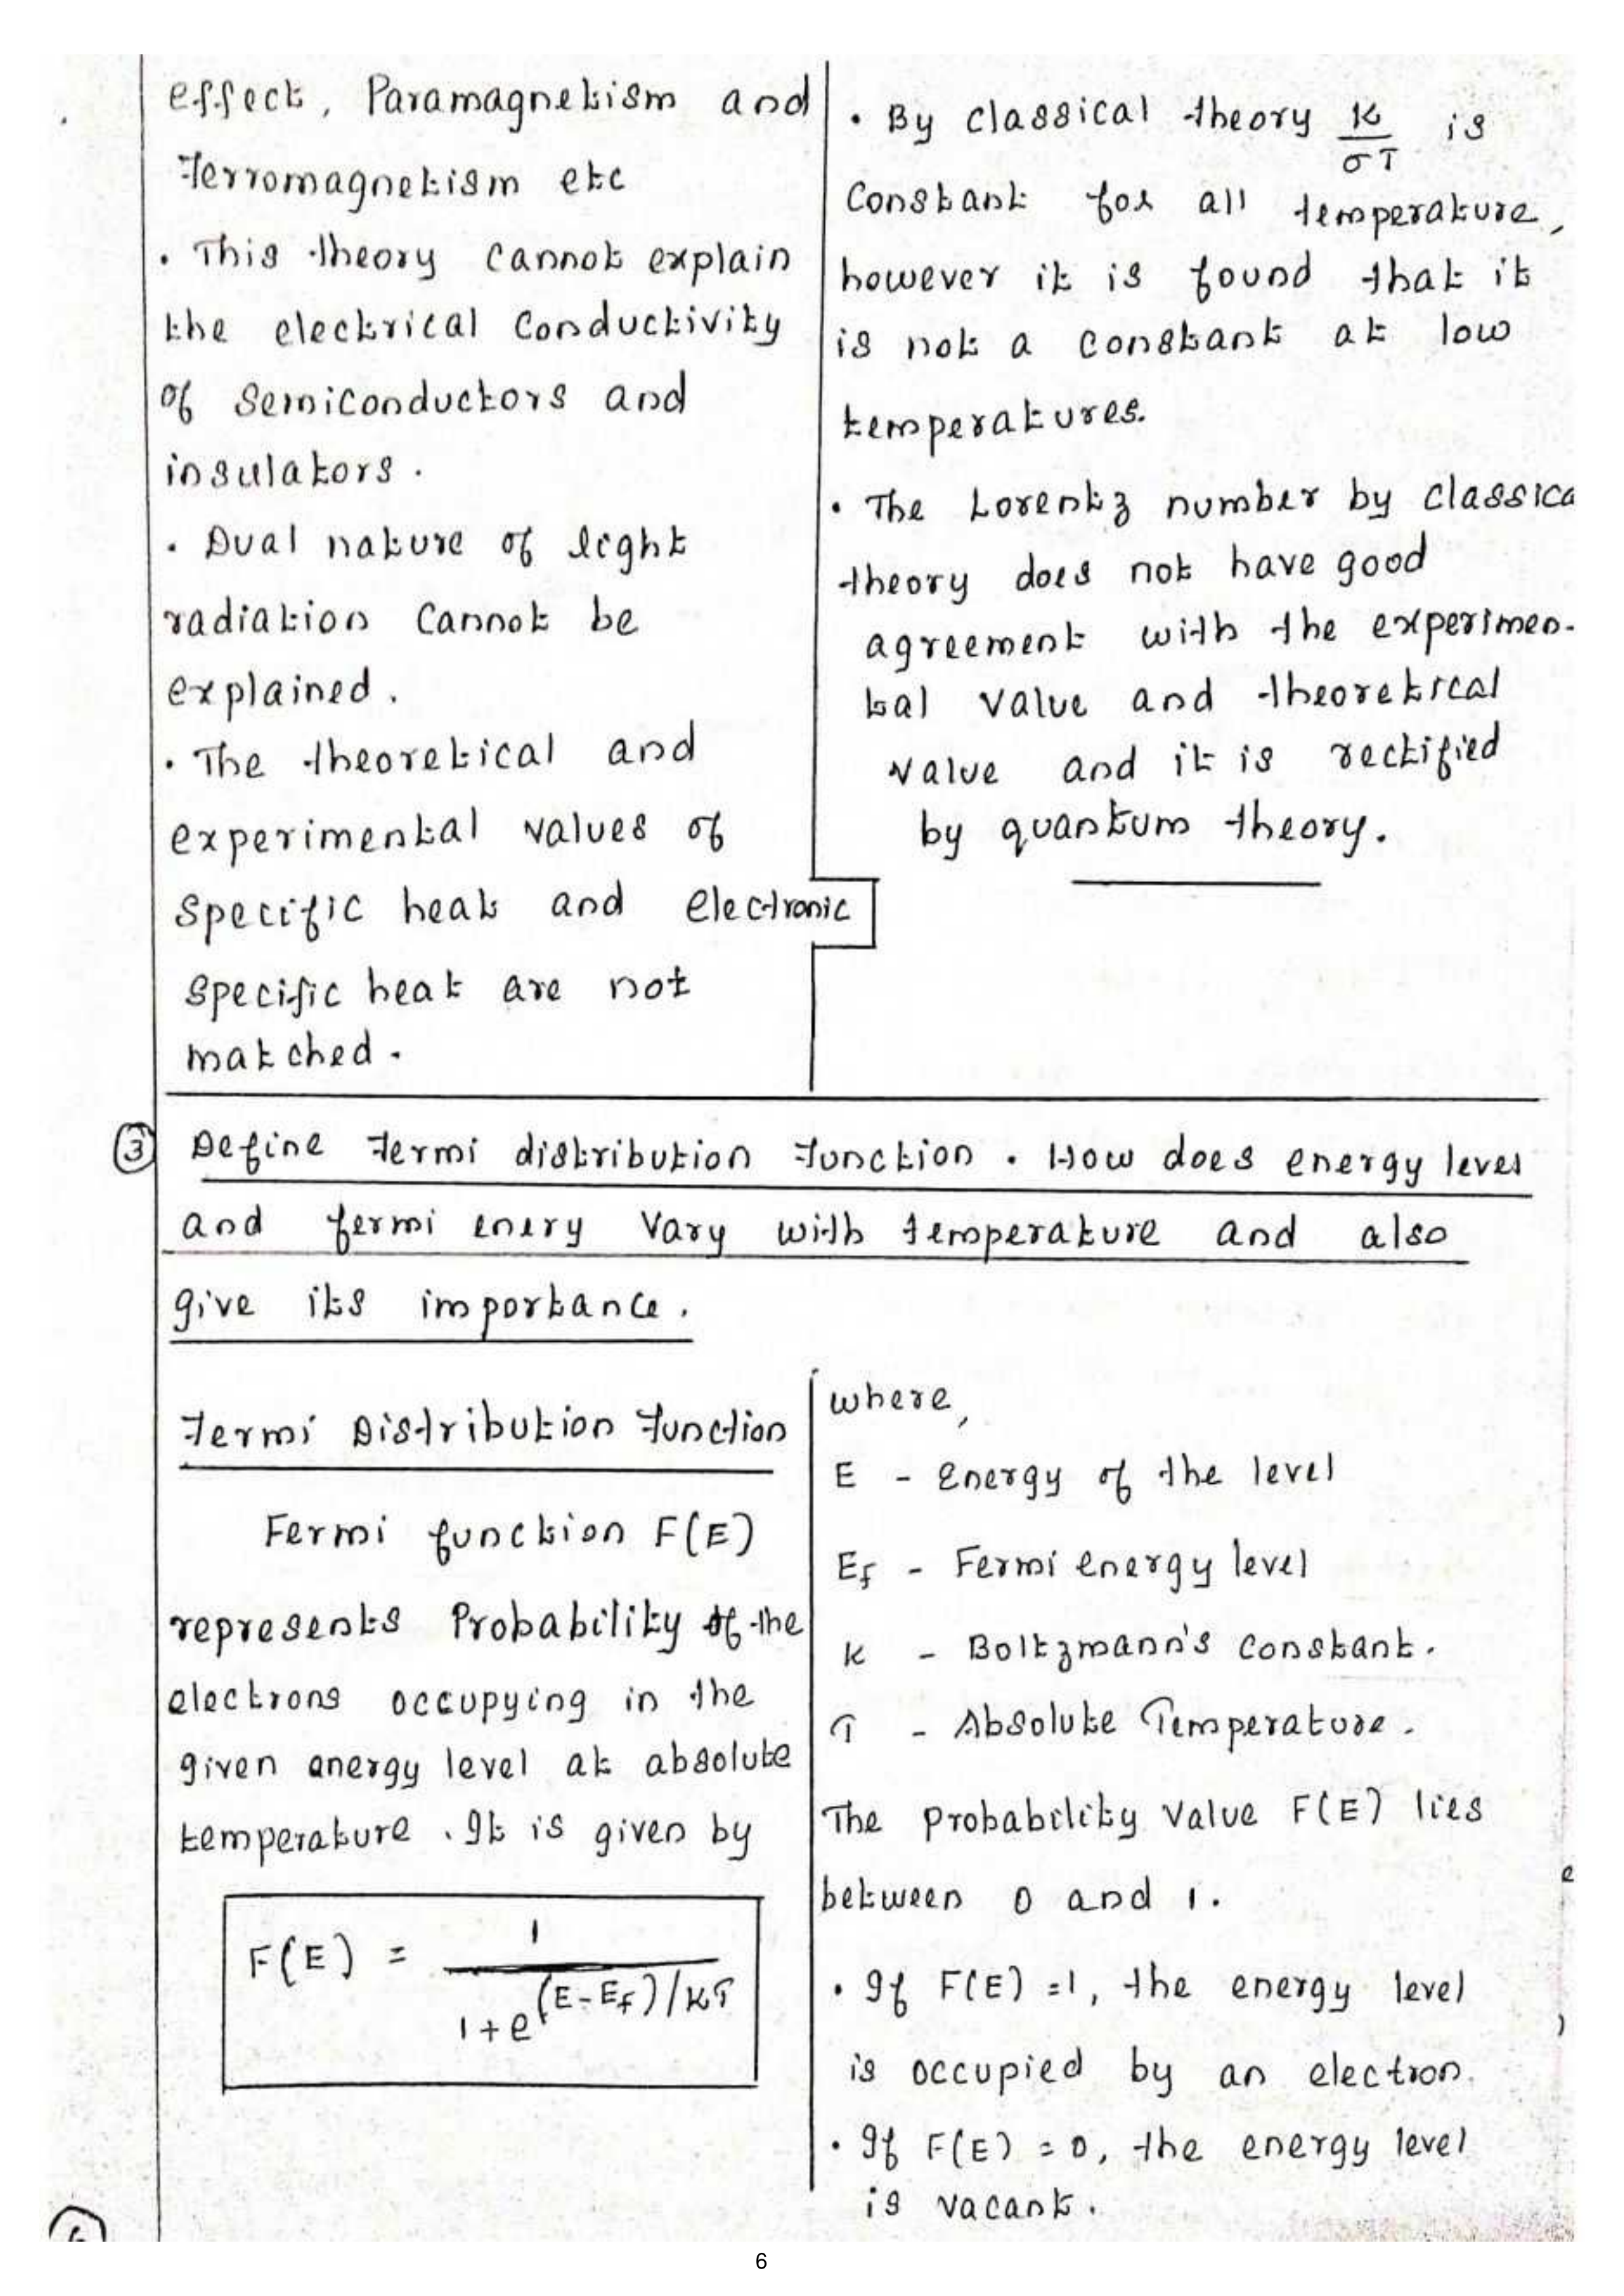 effect, Paramagnetism and
Ferromagnetism etc
. This theory cannot explain
the electrical Conductivity
of Semiconductors and
insulators.
. Dual nature of light
radiation Cannot be
explained.
. The theoretical and
experimental values of
Specific heat and electronic
Specific heat are not
matched.
. By classical theory K/σT is
Constant for all temperature,
however it is found that it
is not a constant at low
temperatures.
. The Lorentz number by classica
theory does not have good
agreement with the experimen-
tal value and theoretical
value and it is rectified
by quantum theory.
③ Define Fermi distribution Function. How does energy level
and fermi enery Vary with temperature and also
give its importance.
Fermi Distribution Function
Fermi function F(E)
represents Probability of the
electrons occupying in the
given energy level at absolute
temperature. It is given by
F(E) = 1 / 1+e^(E-Ef)/KT
where,
E - Energy of the level
Ef - Fermi energy level
K - Boltzmann's Constant.
T - Absolute Temperature.
The Probability Value F(E) lies
between 0 and 1.
. If F(E) =1, the energy level
is occupied by an electron.
. If F(E) = 0, the energy level
is vacant.
6